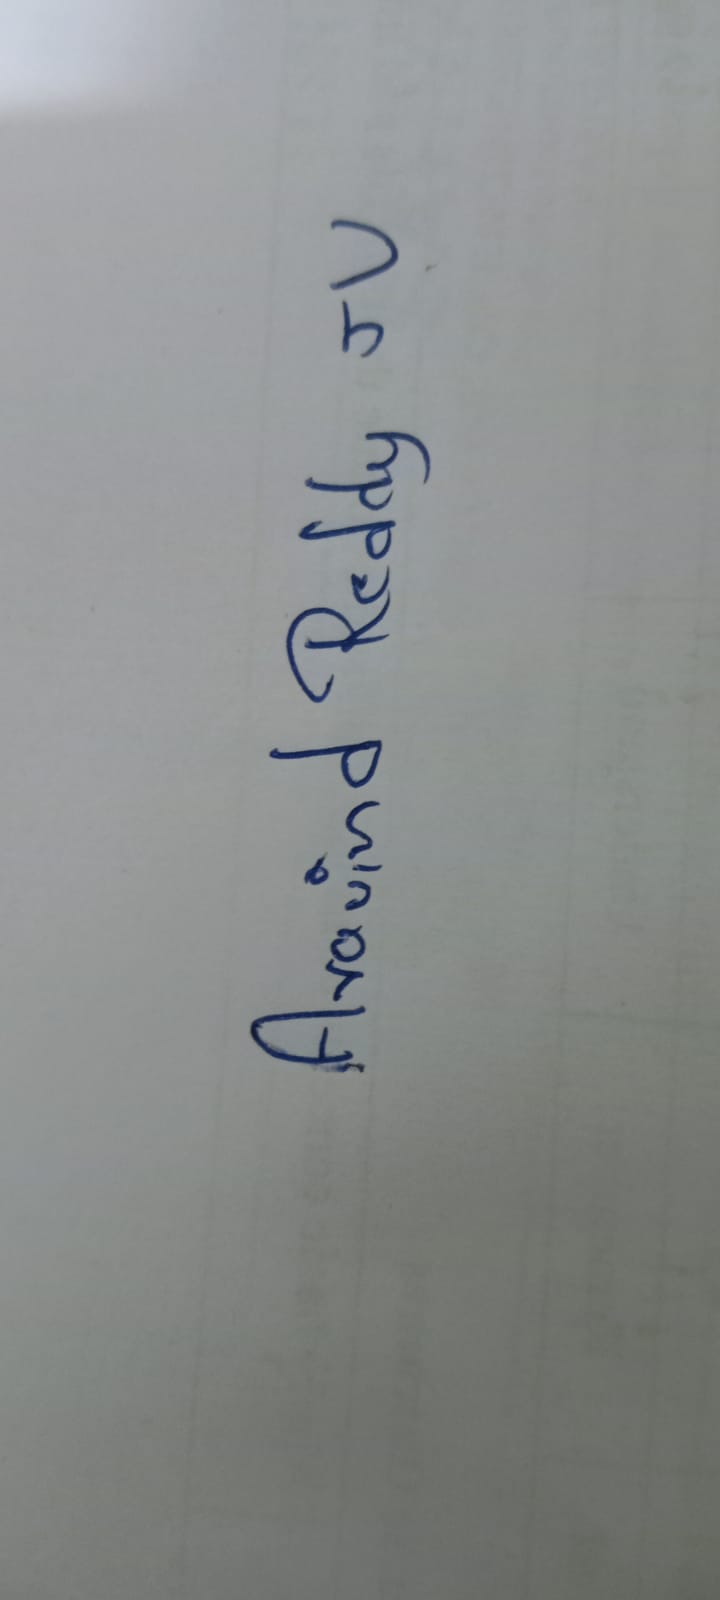 Aravind Reddy J V